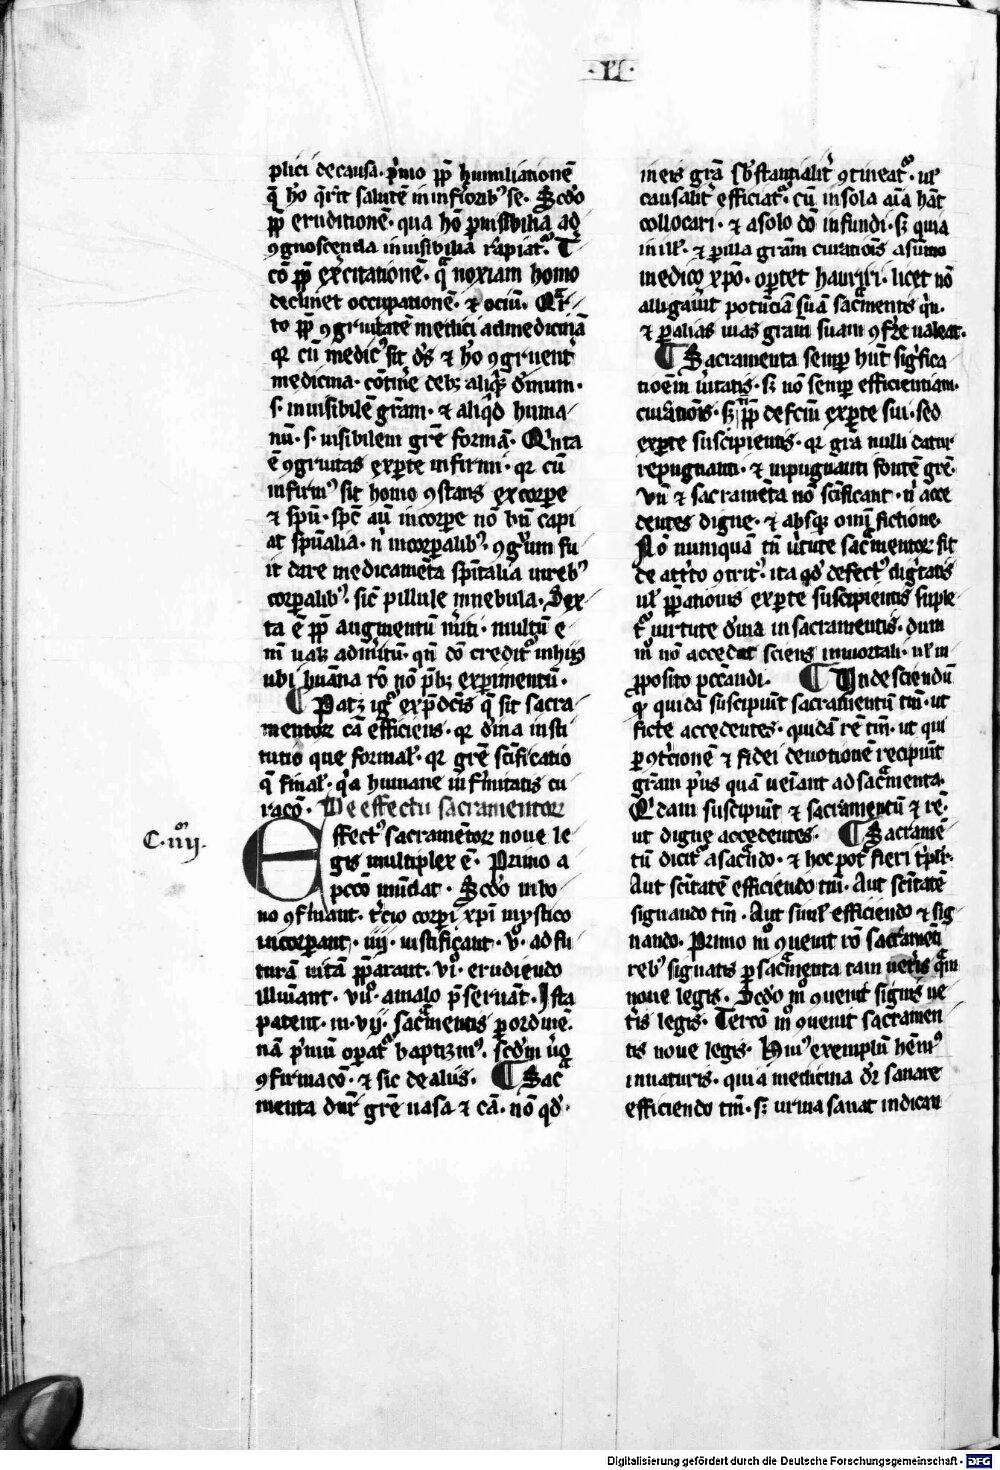 ·VI·
plici de causa. p̃mo ꝓp̃ humiliationẽ
q̃ hõ q̃rit salutẽ in inferiorib⁹ se. Scd̾o
ꝓp̃ eruditionẽ. qua hõ ꝑ uisibilia ad
ꝯgnoscenda inuisibilia rapiat᷑. T
cõ ꝓp̃ exc̾itationẽ. q̃ noxiam homo
declinet occupationẽ. ⁊ ociũ. Qr̃
to ꝓp̃ ꝯgruitatẽ medici ad medicinã
qꝛ cũ medic⁹ sit ds̾ ⁊ hõ ꝯgruent᷑
medicina. cõtine᷑ deb; aliqͥd diuinum.
s. inuisibilẽ grãm. ⁊ aliqͥd huma
nũ. s. uisibilem grẽ formã. Qͥnta
ẽ ꝯgruitas ex ꝑte infirmi. qꝛ cũ
infirm⁹ sit homo ꝯstans ex corꝑe
⁊ spũ. spc̃ aũ in corꝑe nõ bñ capi
at spũalia. nͥ in corꝑalib⁹. ꝯgruum fu
it dare medicamẽta spũtalia in reb⁹
corꝑalib⁹. sic̃ pillule in nebula. Sex
ta ẽ ꝓp̃ augmentũ mͥti. multũ e
ni ual; ad mͥitũ. qñ cõ credit᷑ in hijs
ubi huãna rõ nõ p̃b; exꝑimentũ.
¶ Pat; igͥ ex p̃dc̃is q̃ sit sacra
mentoꝝ cã efficiens. qꝛ diuina insti
tutio que formal᷑. qꝛ grẽ sc̃ificatio
q̃ final᷑. qͥa humane infirmitatis cu
racõ. De effectu sacramentoꝝ
C. iiij.
Effect⁹ sacramẽtoꝝ noue le
gis multiplex ẽ. Primo a
pccõ mũdat. Scd̾o in bo
no ꝯfirmant. tͥcio corpi xpi mystico
incorꝑant. iiij. iustificant. vͦ. ad fu
turã uitã p̃parant. viͦ. erudiendo
illuiant. viiͦ. a malo p̃seruãt. Ista
patent. in. vij. sacͣmentis ꝑ ordinẽ.
nã pͥmũ oꝑat᷑ baptizm⁹. scd̾m ũo
ꝯfirmacõ. ⁊ sic de aliis. ¶ Sacͣ
menta dnr̃ grẽ uasa ⁊ cã. nõ qd̾.
in eis grã sb̾stantialit᷑ ꝯtineat᷑. ul᷑
causalit᷑ efficiat᷑. cũ in sola aĩa hãt
collocari. ⁊ a solo dõ infundi. s; quia
in ill᷑. ⁊ ꝑ illa grãm curatiõis a sũmo
medico xpõ. oꝑtet hauriri. licet nõ
alligauͥit potẽciã suã sacͣmentis qͥn.
⁊ ꝑ alias uias gram suam ꝯferre ualeat.
¶ Sacramenta semꝑ hñt significa
tioẽm uͥitatis. s; nõ semꝑ efficientiam.
curatiõis. s; ꝓp̃ defc̃tũ ex ꝑte sui. sed
ex ꝑte suscipientis. qꝛ grã nulli datur
repugnanti. ⁊ inpugnanti fontẽ grẽ.
Vñ ⁊ sacramẽta nõ sc̃ificant. nͥ acce
dentes digne. ⁊ absq; omni fictione.
Nõ nunquã tñ uͥtute sacͣmentoꝝ fit
de attͥto ꝯtrit⁹. ita qd̾ defect⁹ dignitatis
ul᷑ p̃parationis ex ꝑte suscipientis suple
t᷑ uirtute diuina in sacramentis. dum
mͦ nõ accedat sciens in mortali. ul᷑ in
ꝓposito peccandi. ¶ Unde sciendũ
qͥ quidã suscipiunt sacramentũ tm̃. ut
ficte accedentes. quidã rẽ tm̃. ut qui
ꝑ ꝯtͥcionẽ ⁊ fidei deuotionẽ recipiunt
grãm pͥus quã ueniant ad sacͣmenta.
Qͥdam suscipiũt ⁊ sacramentũ ⁊ rẽ.
ut digne accedentes. ¶ Sacramẽ
tũ dicit᷑ a sacrando. ⁊ hoc pot̾ fieri tͥplr̃.
Aut sc̃itatẽ efficiendo tm̃. Aut sc̃itatẽ
signando tm̃. Aut simul efficiendo ⁊ sig
nando. Primo mͦ ꝯuenit rõ sacramẽti
reb⁹ signatis ꝑ sacͣmenta tam uetͥis qͣm
noue legis. Scd̾o mͦ ꝯuenit signis ue
tͥis legis. Tercõ mͦ ꝯuenit sacramen
tis noue legis. Hui⁹ exemplũ hẽm⁹
in naturis. quia medicina dr̃ sanare
efficiendo tm̃. s; urina sanat indican
Digitalisierung gefördert durch die Deutsche Forschungsgemeinschaft - DFG